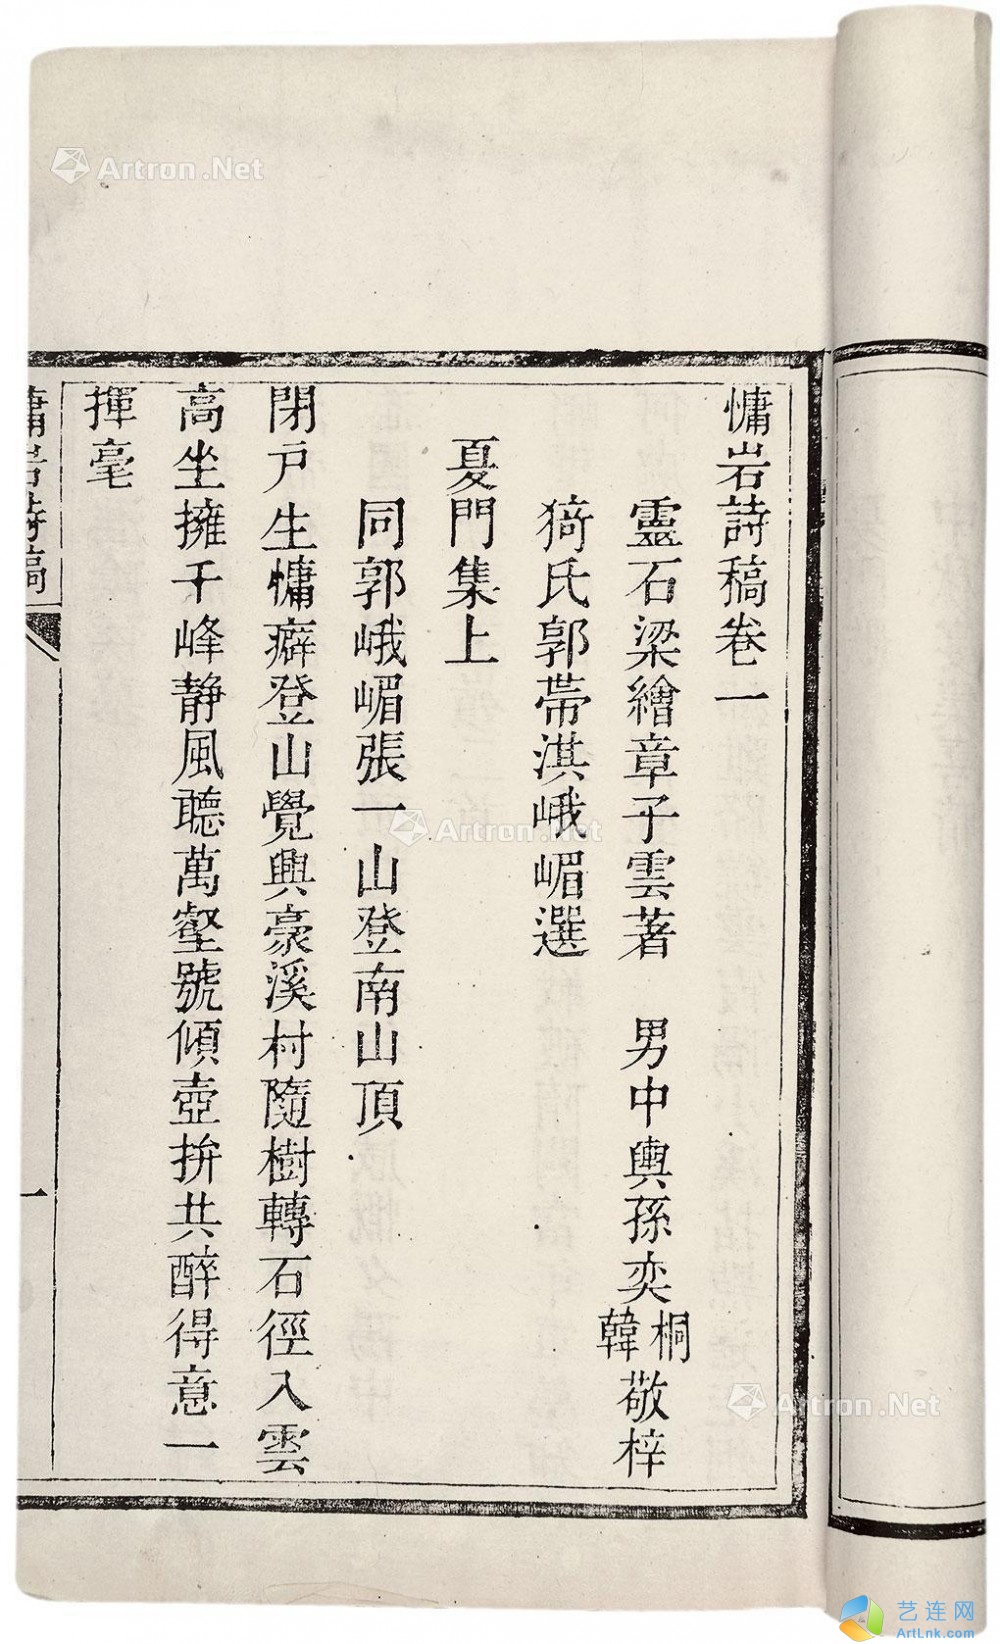 慵岩詩稿卷一
靈石梁繪章子雲著　男中輿孫奕桐韓敬梓
猗氏郭帶淇峨嵋選
夏門集上
同郭峨嵋張一山登南山頂
閉戶生慵癖登山覺興豪溪村隨樹轉石徑入雲
高坐擁千峰靜風聽萬壑號傾壺拚共醉得意一
揮毫
慵岩詩稿
一
Artron.Net
Artron.Net
Artron.Net
艺连网
ArtLnk.com